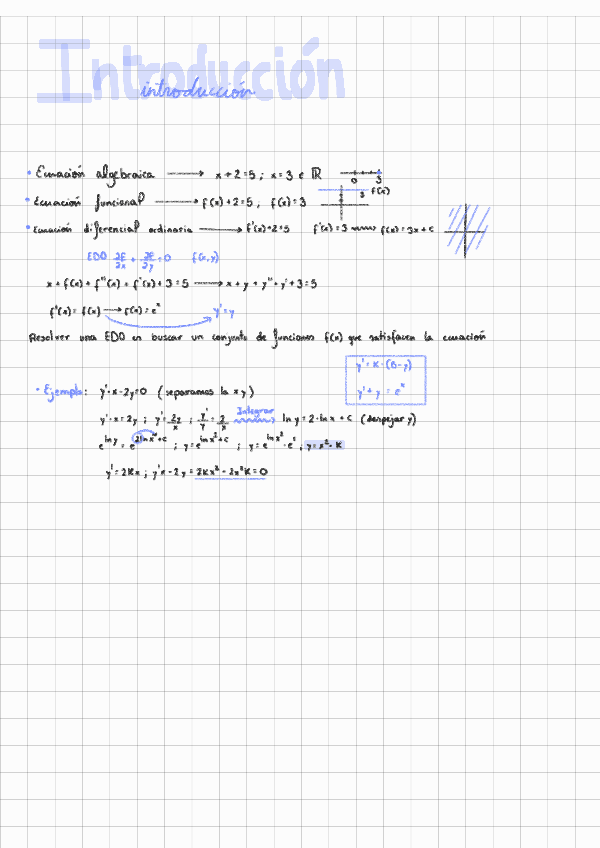 Introducción
introducción
• Ecuación algebraica → x + 2 = 5 ; x = 3 e ℝ 0 3
• Ecuación funcional → f(x) + 2 = 5 , f(x) = 3 3 f(x)
• Ecuación diferencial ordinaria → f'(x) + 2 = 5 f'(x) = 3 → f(x) = 3x + c
EDO ∂F/∂x + ∂F/∂y = 0 f(x,y)
x + f(x) + f''(x) + f'(x) + 3 = 5 → x + y + y'' + y' + 3 = 5
f'(x) = f(x) → f(x) = e^x y' = y
Resolver una EDO en buscar un conjunto de funciones f(x) que satisfacen la ecuación
y' = K · (6 - y)
y' + y = e^x
• Ejemplo: y' · x - 2y = 0 (separamos la x y)
y' · x = 2y ; y' = 2y/x ; y'/y = 2/x Integrar → ln y = 2 · ln x + c (despejar y)
e^{ln y} = e^{2 ln x + c} ; y = e^{ln x² + c} ; y = e^{ln x²} · e^c ; y = x² · K
y' = 2Kx ; y'x - 2y = 2Kx² - 2x²K = 0